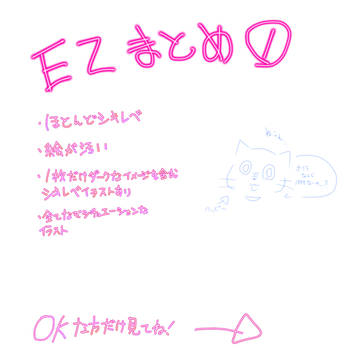 EZまとめ①
・ほとんどシキレベ
・絵が汚い
・1枚だけダークなイメージを含む
シキレベイラストあり
・全てなぜシチュエーションな
イラスト
ねこん
OKな方だけ見てね!